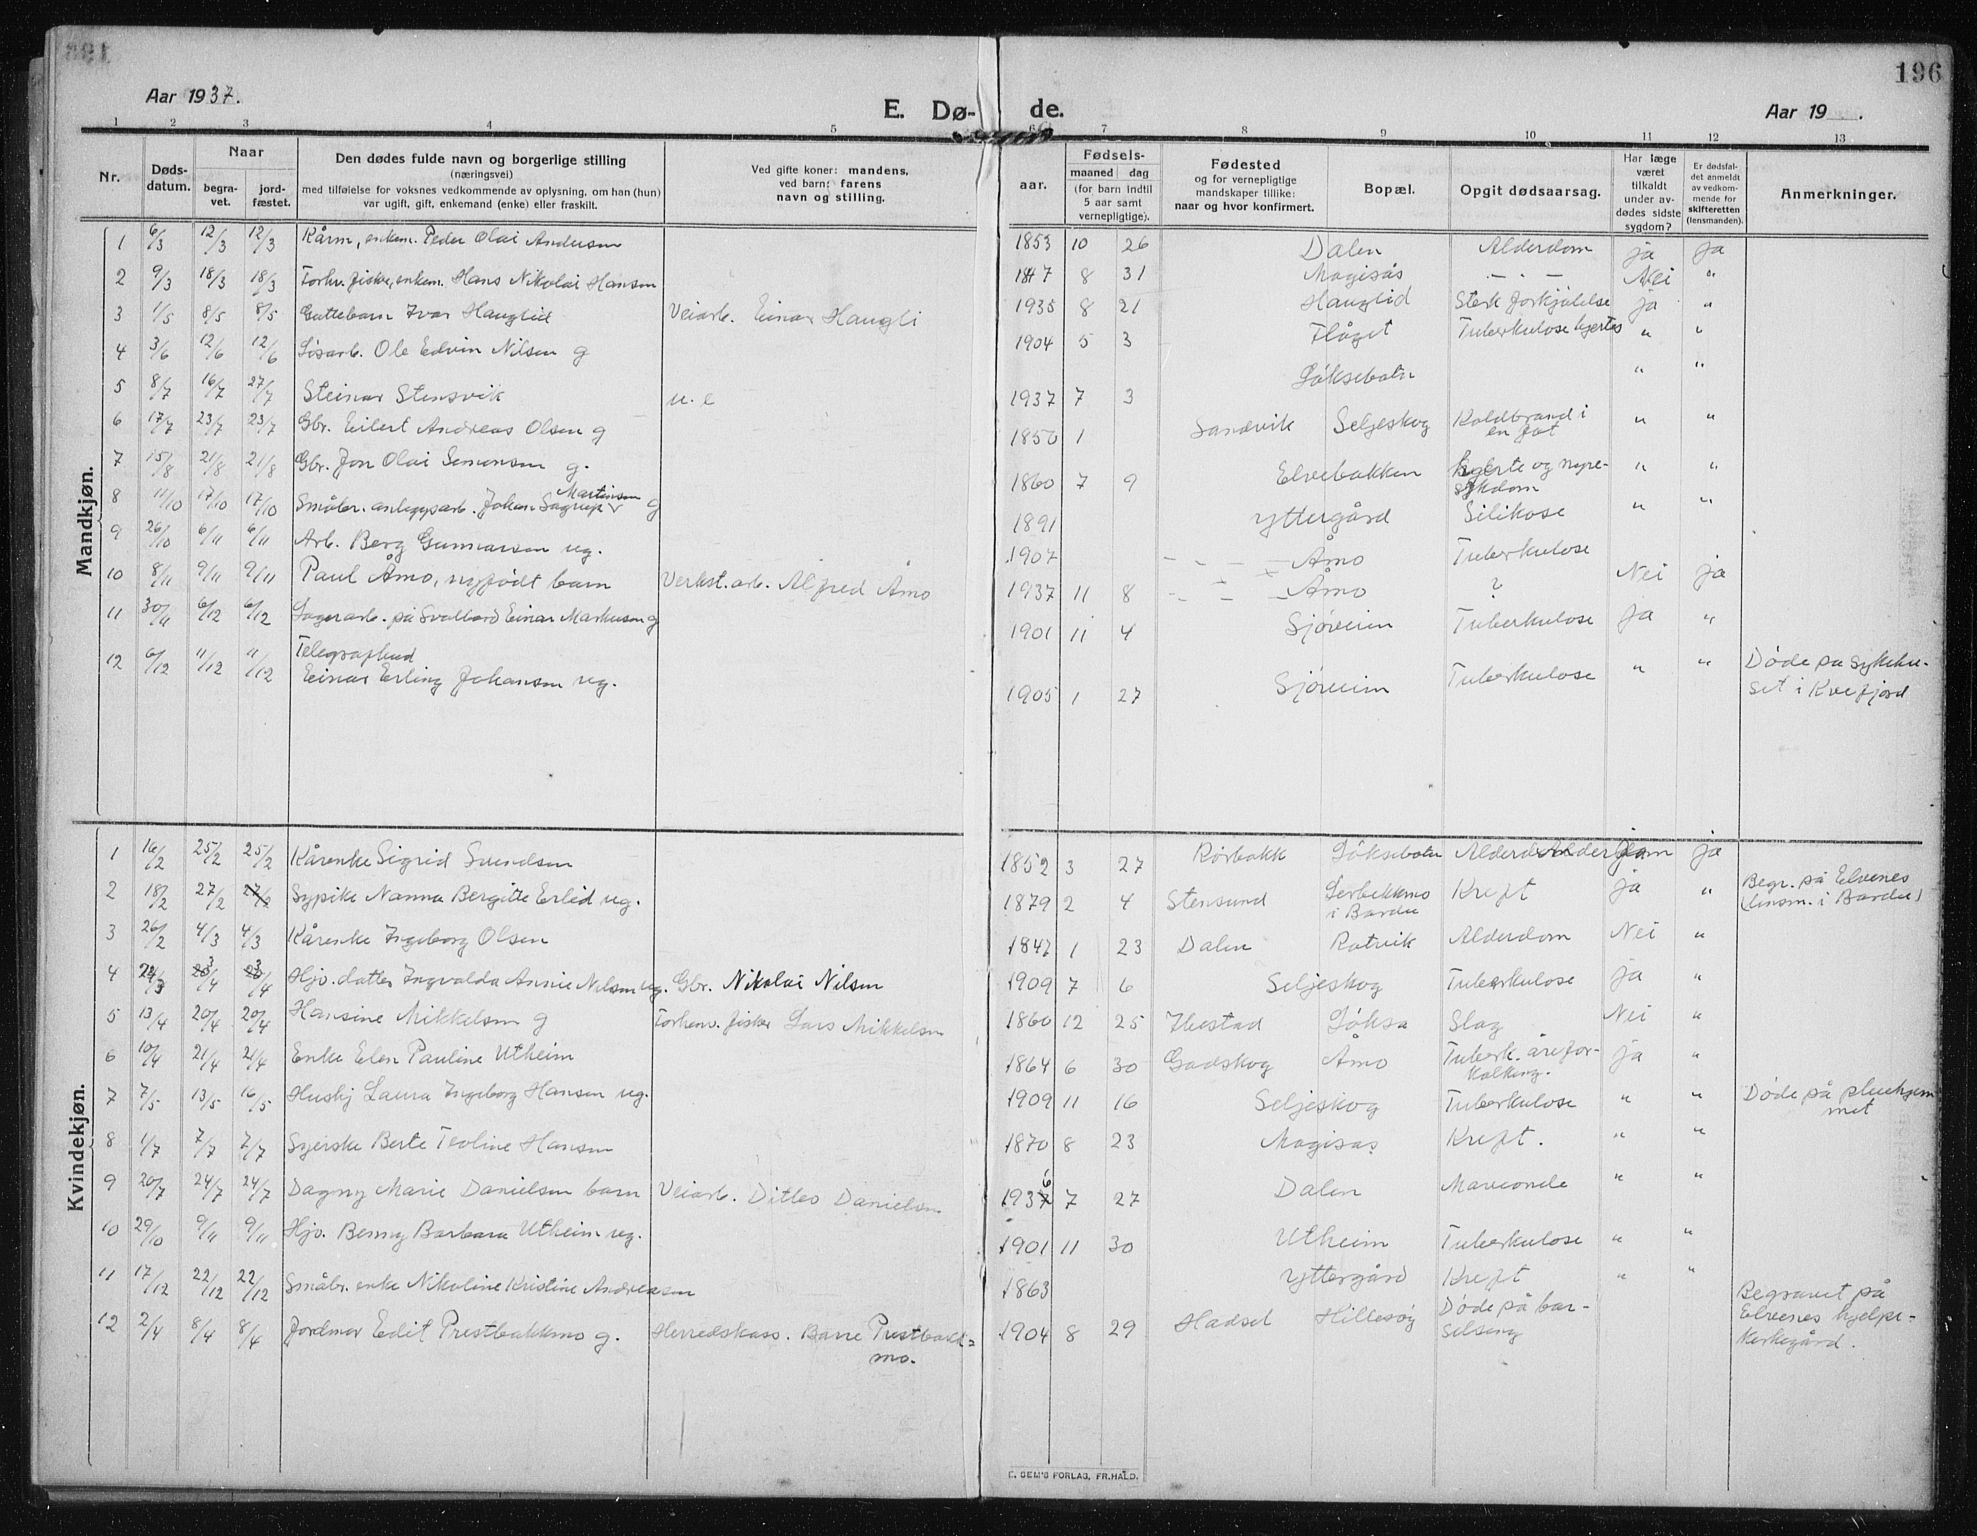 196
Aar 1937.
E. Dø- de.
Aar 19 .
1 2 3 4 5 6 7 8 9 10 11 12 13
Nr.
Døds-
datum.
Naar
begra-
vet.
jord-
fæstet.
Den dødes fulde navn og borgerlige stilling
(næringsvei)
med tilføielse for voksnes vedkommende av oplysning, om han (hun)
var ugift, gift, enkemand (enke) eller fraskilt.
Ved gifte koner: mandens,
ved barn: farens
navn og stilling.
aar.
Fødsels-
maaned dag
(for barn indtil
5 aar samt
vernepligtige).
Fødested
og for vernepligtige
mandskaper tillike:
naar og hvor konfirmert.
Bopæl.
Opgit dødsaarsag.
Har læge
været
tilkaldt
under av-
dødes sidste
sygdom?
Er dødsfal-
det anmeldt
av vedkom-
mende for
skifteretten
(lensmanden).
Anmerkninger.
Mandkjøn.
1 6/3 12/3 12/3 Kårm, enkem. Peder Olai Andersen 1853 10 26 Dalen Alderdom ja ja
2 9/3 18/3 18/3 Forhv. fisker, enkem. Hans Nikolai Hansen 1847 8 31 Magisås - - - Nei "
3 1/5 8/5 8/5 Guttebarn Ivar Hauglid Veiarb. Einar Haugli 1935 8 21 Hauglid Sterk forkjølelse ja "
4 3/6 12/6 12/6 Løsarb. Ole Edvin Nilsen g 1904 5 3 Flåget Tuberkulose hjertes " "
5 8/7 16/7 27/7 Steinar Stensvik u. e 1937 7 3 Løksebotn " "
6 17/7 23/7 23/7 Gbr. Eilert Andreas Olsen g 1850 1 Sandvik Seljeskog Koldbrand i
en fot " "
7 15/8 21/8 21/8 Gbr. Jon Olai Simonsen g. 1860 7 9 Elvebakken hjerte og nyre-
sykdom " "
8 11/10 17/10 17/10 Småbr. anleggsarb. Johan Martinsen g 1891 Yttergård Silikose " "
9 26/10 6/11 6/11 Arb. Berg Gunnarsen ug. 1907 - - - Åmo Tuberkulose
10 8/11 9/11 9/11 Paul Åmo, nyfødt barn Verkst. arb. Alfred Åmo 1937 11 8 - - - Åmo ? Nei ja
11 30/11 6/12 6/12 Lagerarb. på Svalbard Einar Markuson g 1901 11 4 Sjøveien Tuberkulose Ja "
12 6/12 11/12 11/12 Telegrafbud
Einar Erling Johansen ug. 1905 1 27 Sjøveien Tuberkulose " " Døde på sykehu-
set i Kvefjord
Kvindekjøn.
1 16/2 25/2 25/2 Kårenke Sigrid Svendsen 1852 3 27 Rørbakk Løksebotn Alderdom ja ja
2 18/2 27/2 27/2 Sypike Nanna Bergitte Erlid ug. 1879 2 4 Stensund Serbekkmo
i Bardu Kreft ja " Begr. på Elvenes
(Linsm. i Bardu)
3 26/2 4/3 4/3 Kårenke Ingeborg Olsen 1847 1 23 Dalen Rotvik Alderdom Nei "
4 24/3 3/4 3/4 Hjv. datter Ingvalda Annie Nilsen ug. Gbr. Nikolai Nilsen 1909 7 6 Seljeskog Tuberkulose ja "
5 13/4 20/4 20/4 Hansine Mikkelsen g Forhenv. fisker Lars Mikkelsen 1860 12 25 Ibestad Løksa Slag Nei "
6 10/4 21/4 21/4 Enke Elen Pauline Utheim 1864 6 30 Gadskog Åmo Tuberk. årefor-
kalkng. ja "
7 7/5 13/5 16/5 Hushj Laura Ingeborg Hansen ug. 1909 11 16 Seljeskog Tuberkulose " " Døde på pleiehjem
met
8 1/7 7/7 7/7 Syerske Berte Teoline Hansen 1870 8 23 Magisås Kreft. " "
9 20/7 24/7 24/7 Dagny Marie Danielsen barn Veiarb. Ditlev Danielsen 1936 7 27 Dalen " "
10 29/10 9/11 9/11 Hjv. Benny Barbara Utheim ug. 1901 11 30 Utheim Tuberkulose " "
11 17/12 22/12 22/12 Småbr. enke Nikoline Kristine Andreassen 1863 Yttergård Kreft " "
12 2/4 8/4 8/4 Jordmor Edit Prestbakkmo g. Herredskass. Barre Prestbakk=
mo. 1904 8 29 Hadsel Hillesøy Døde på bar-
selseng Begravet på
Elvenes hjelpe-
kirkegård.
E. SEM'S FORLAG, FR.HALD.